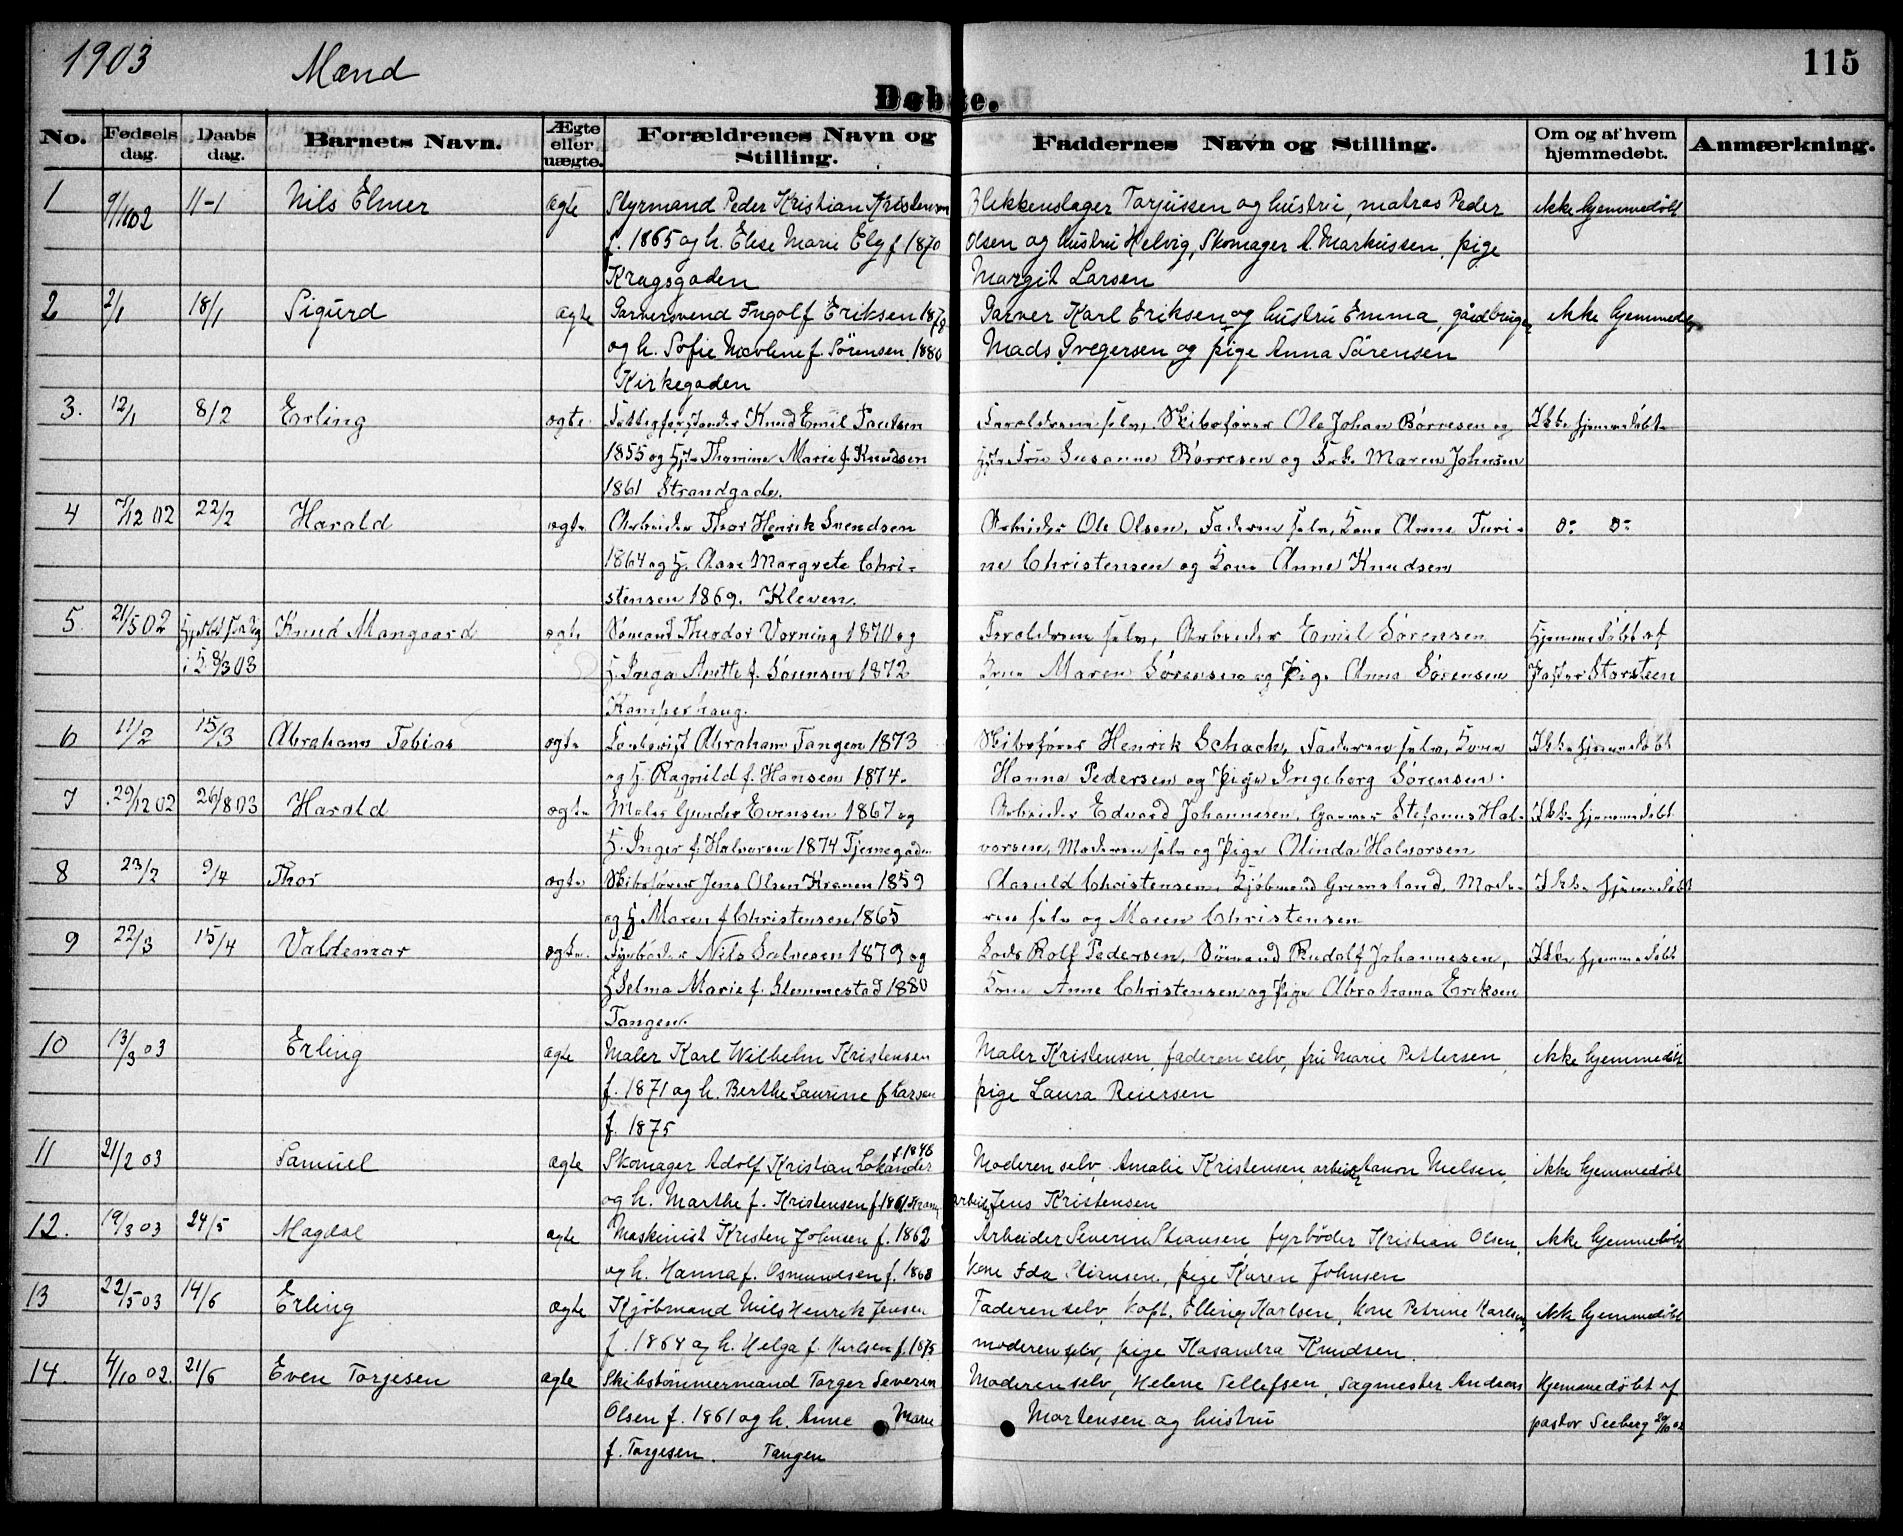 1903 Mænd 115
Døbte.
No. Fødsels dag. Daabs dag. Barnets Navn. Ægte eller uægte. Forældrenes Navn og Stilling. Faddernes Navn og Stilling. Om og af hvem hjemmedøbt. Anmærkning.
1 11-1 Nils Elmer ægte Styrmand Peder Kristian Kristensen Blikkenslager Torjussen og hustru, matros Peder ikke hjemmedøbt
f. 1865 og h. Elise Marie Elg f 1870 Olsen og hustru Helvig, Skomager A. Markussen, pige
Kragsgaden Margit Larsen
2 2/1 18/1 Sigurd ægte Garversvend Ingolf Eriksen 1878 Garver Karl Eriksen og hustru Emma, gårdbruger ikke hjemmedøbt
og h. Sofie f. Sørensen 1880 Mads Gregersen og pige Anna Sørensen
Kirkegaden
3. 12/1 8/2 Erling ægte. Fattigforstander Knud Emil Poulsen Forældrene selv, Skibsfører Ole Johan Børresen og Ikke hjemmedøbt
1855 og Thomine Marie f. Knudsen Fru Susanne Børresen og Frk. Maren Johnsen
1861 Strandgade.
4 7/12 02 22/2 Harald ægte Arbeider Thor Henrik Svendsen Arbeider Ole Olsen, Faderen selv, Kone Anne Turi-
1864 og H. Aase Margrete Chri- ne Christensen og Kone Anne Knudsen
stensen 1869. Kleven.
5. 21/5 02 Knud Mangaard ægte Sømand Theodor Vorning 1870 og Forældrene selv, Arbeider Emil Sørensen Hjemmedøbt af
8/3 03 H. Inga Anette f. Sørensen 1872 Kone Maren Sørensen og Pige Anna Sørensen Pastor Storsteen
Kamperhaug.
6 11/2 15/3 Abraham Tobias ægte Abraham Tangen 1873 Skibsfører Henrik Schack, Faderen selv, Kone Ikke hjemmedøbt
og H. Ragnild f. Hansen 1874. Hanna Pedersen og Pige Ingeborg Sørensen.
7 29/12 02 Harald ægte Maler Gunder Evensen 1867 og Arbeider Edvard Johannesen, Garver Stefanus Hal- Ikke hjemmedøbt
H. Inger f. Halvorsen 1874 Tjernegaden vorsen, Moderen selv og Pige Olinda Halvorsen
8 23/2 9/4 Thor ægte Skibsfører Jens Olsen Kranen 1859 Christensen, Kjøbmand Grimsland, Mode- Ikke hjemmedøbt
og H. Maren f Christensen 1865 ren selv og Maren Christensen
9 22/3 15/4 Valdemar ægte. Fyrbøder Nils Salvesen 1879 og Lods Rolf Pedersen, Sømand Rudolf Johannesen, Ikke hjemmedøbt
H. Selma Marie f. Klemmestad 1880 Kone Anne Christensen og Pige Abrahama Eriksen
Tangen.
10 13/3 03 Erling ægte Maler Karl Wilhelm Kristensen Maler Kristensen, faderen selv, fru Marie Pettersen, ikke hjemmedøbt
f. 1871 og h. Berthe Laurine f Larsen pige Laura Reiersen
f. 1875
11 21/2 03 Samuel ægte Skomager Adolf Kristian Lokander f. 1846 Moderen selv, Amalie Kristensen, arbeider Aanon Nielsen, ikke hjemmedøbt
og h. Marthe f. Kristensen f 1861 arbeid. Jens Kristensen
12. 19/3 03 24/5 Magdal ægte Maskinist Kristen Johnsen f. 1862 Arbeider Severin Stiansen, fyrbøder Kristian Olsen, ikke hjemmedøbt
og h. Hanna f. Osmundsen f. 1868 kone Ida Stirnsen, pige Karen Johnsen
13 22/5 03 14/6 Erling ægte Kjøbmand Nils Henrik Jensen Faderen selv, kapt. Elling Karlsen, kone Petrine Karlsen, ikke hjemmedøbt
f. 1864 og h. Helga f. Karlsen f. 1875 moderen selv, pige Kasandra Knudsen.
14. 4/10 02. 21/6 Even Torjesen ægte Skibstømmermand Torger Severin Moderen selv, Helene Tellefsen, sagmester Andreas hjemmedøbt af
Olsen f. 1861 og h. Anne Marie Mortensen og hustru pastor Seeberg 20/10 02
f. Torgesen. Tangen